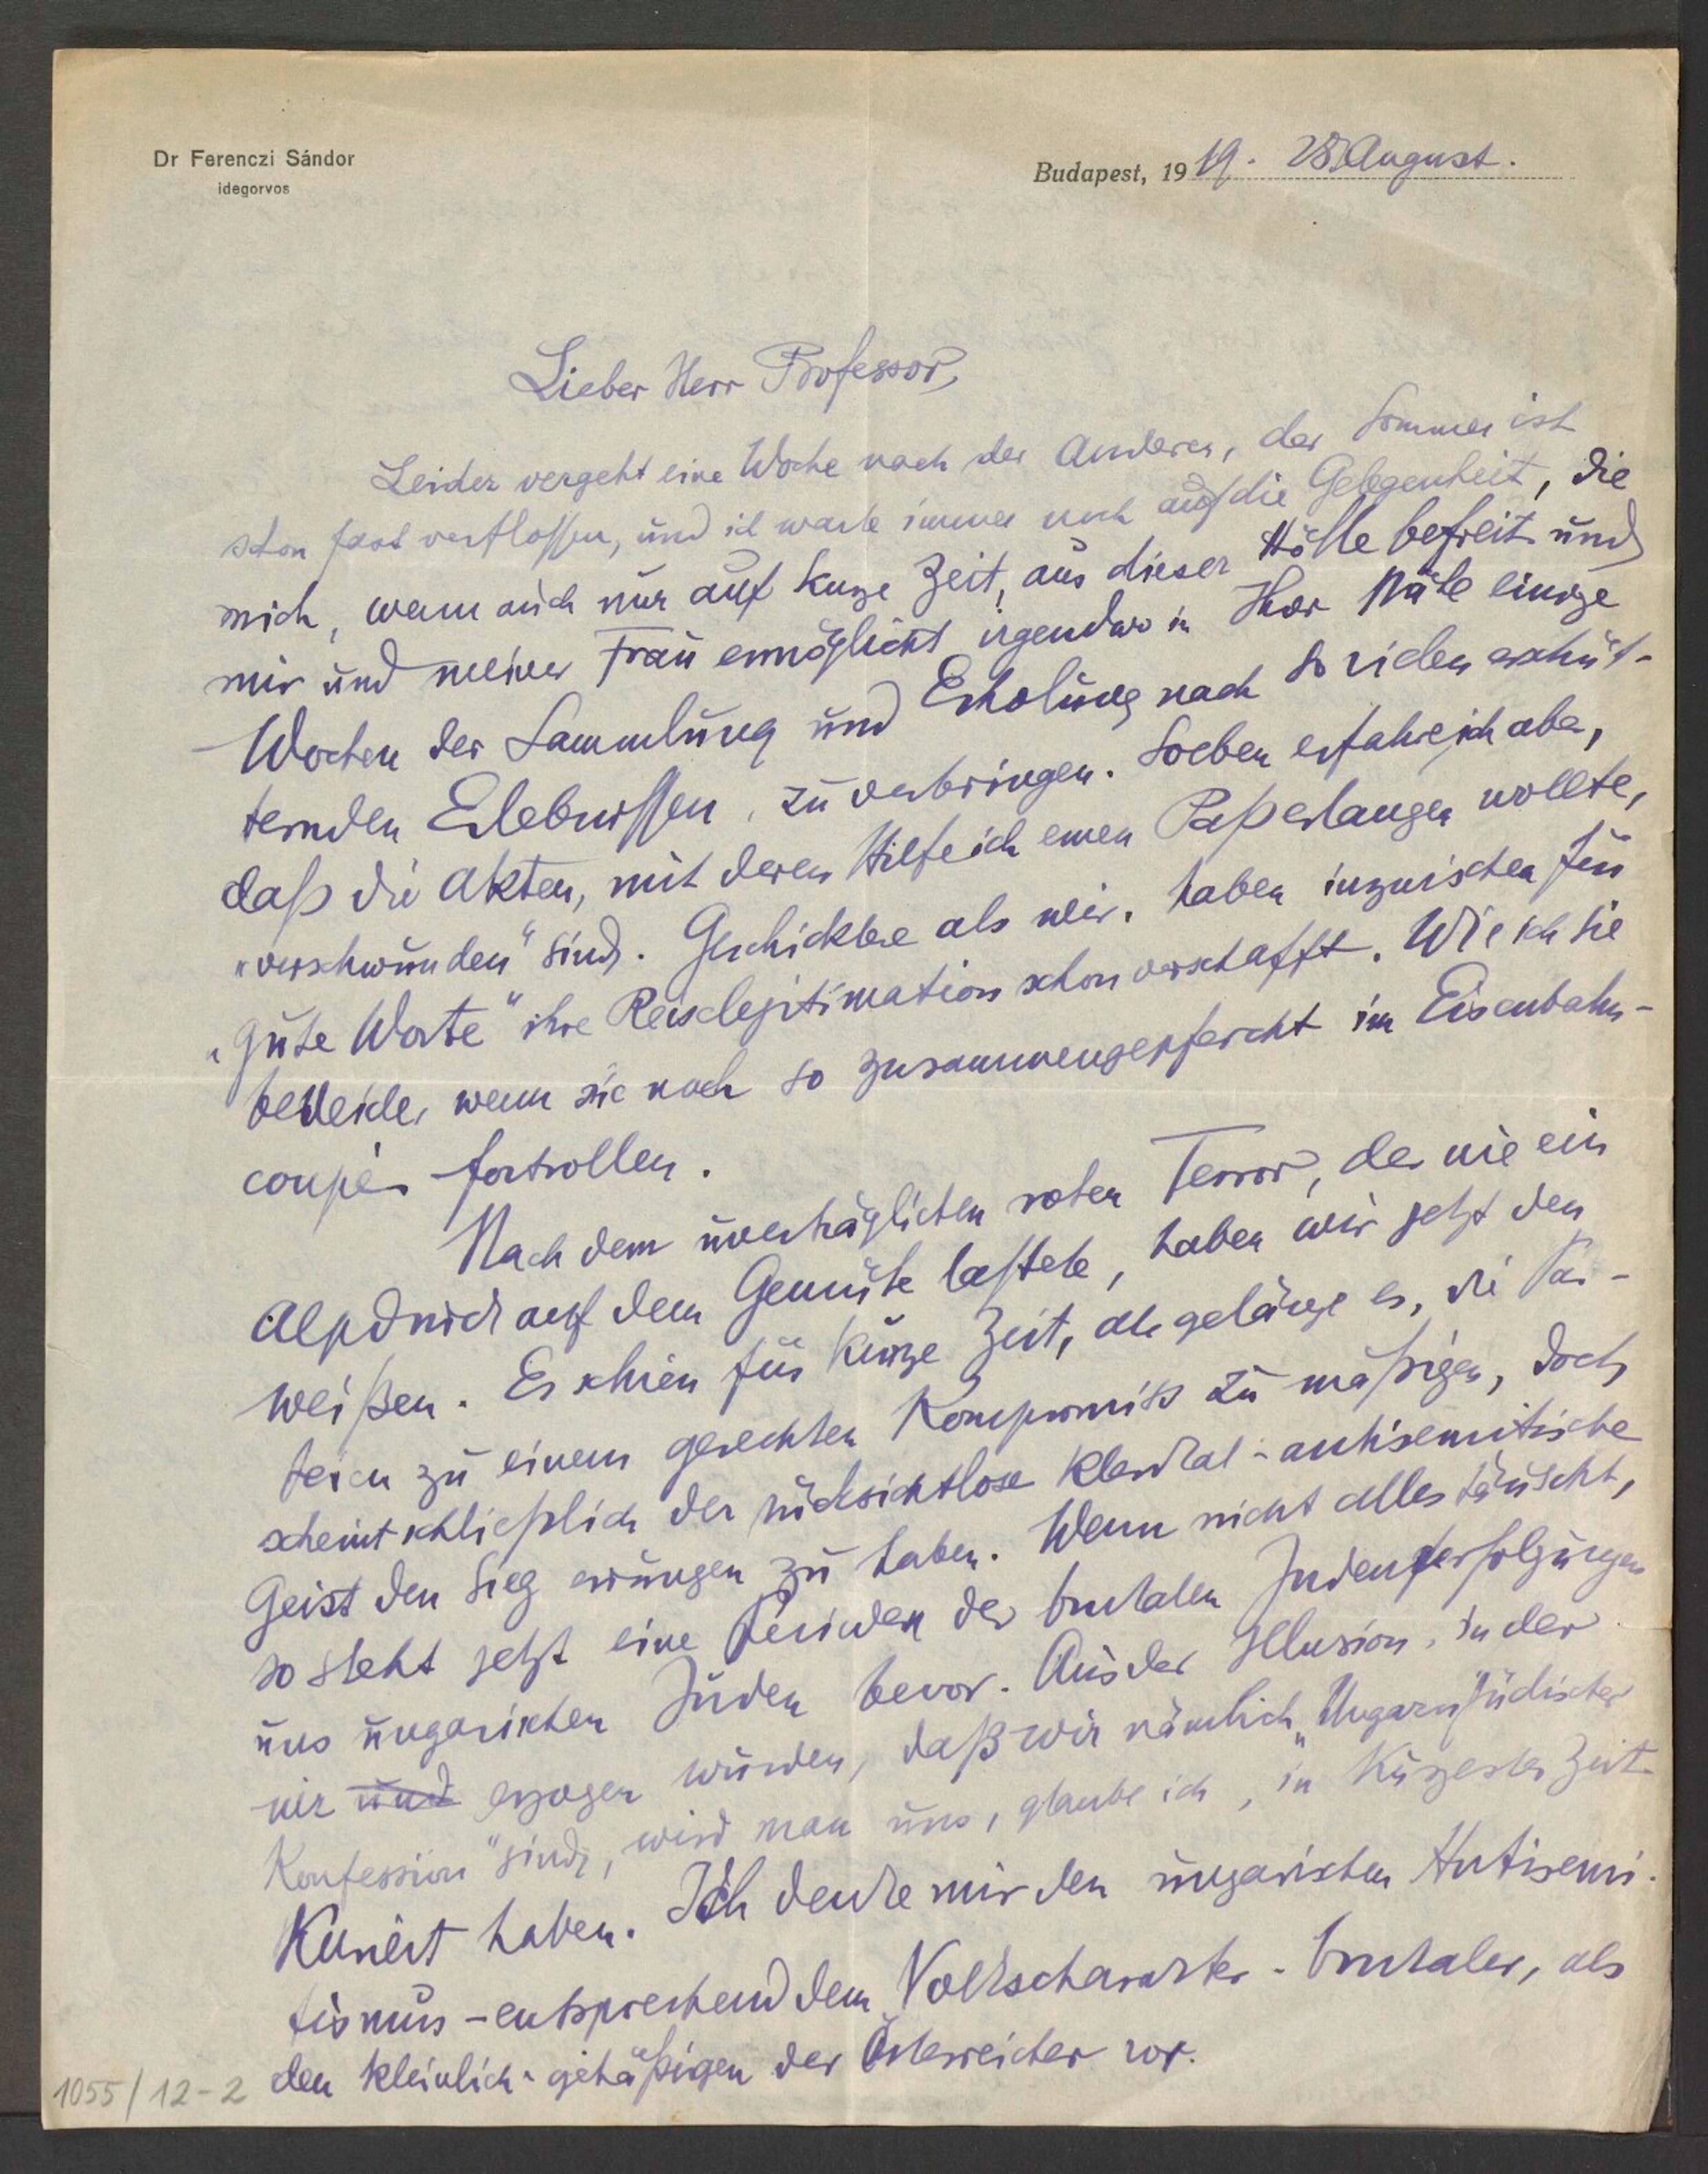 Dr Ferenczi Sándor
idegorvos
Budapest, 1919. 28. August.
Lieber Herr Professor,
Leider vergeht eine Woche nach der Anderen, der Sommer ist
schon fast verflossen, und ich warte immer noch auf die Gelegenheit, die
mich, wenn auch nur auf kurze Zeit, aus dieser Hölle befreit und
mir und meiner Frau ermöglicht irgendwo in Ihrer Nähe einige
Wochen der Sammlung und Erholung nach so vielen erschüt-
ternden Erlebnissen, zu verbringen. Soeben erfahre ich aber,
daß die Akten, mit deren Hilfe ich einen Paß erlangen wollte,
„verschwunden“ sind. Geschicktere als wir, haben inzwischen für
„gute Worte“ ihre Reiselegitimation schon verschafft. Wie ich sie
beneide, wenn sie noch so zusammengepfercht im Eisenbahn-
coupé fortrollen.
Nach dem unerträglichen roten Terror, der wie ein
Alpdruck auf dem Gemüte lastete, haben wir jetzt den
weißen. Es schien für kurze Zeit, als gelänge es, die Par-
teien zu einem gerechten Kompromiß zu mäßigen, doch
scheint schließlich der rücksichtslose klerikal-antisemitische
Geist den Sieg errungen zu haben. Wenn nicht alles täuscht,
so steht jetzt eine Periode der brutalen Judenverfolgungen
uns ungarischen Juden bevor. Aus der Illusion, in der
wir und erzogen wurden, daß wir nämlich „Ungarn jüdischer
Konfession“ sind, wird man uns, glaube ich, in kürzester Zeit
kuriert haben. Ich denke mir den ungarischen Antisemi-
tismus - entsprechend dem Volkscharakter - brutaler, als
den kleinlich-gehäßigen der Österreicher vor.
1055/12-2